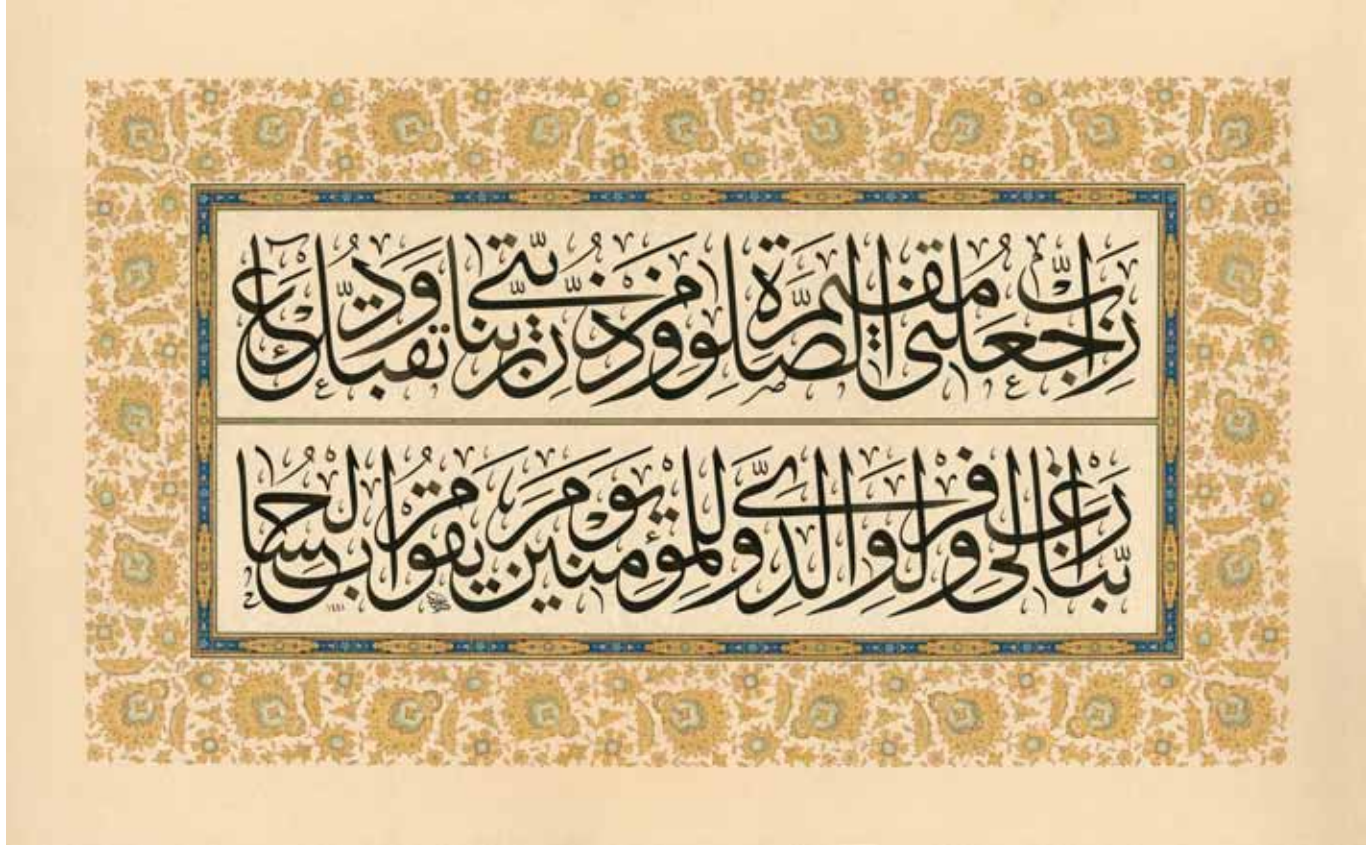 رَبِّ اجْعَلْنِي مُقِيمَ الصَّلٰوةِ وَمِنْ ذُرِّيَّتِي رَبَّنَا وَتَقَبَّلْ دُعَاءِ
رَبَّنَا اغْفِرْ لِي وَلِوَالِدَيَّ وَلِلْمُؤْمِنِينَ يَوْمَ يَقُومُ الْحِسَابُ